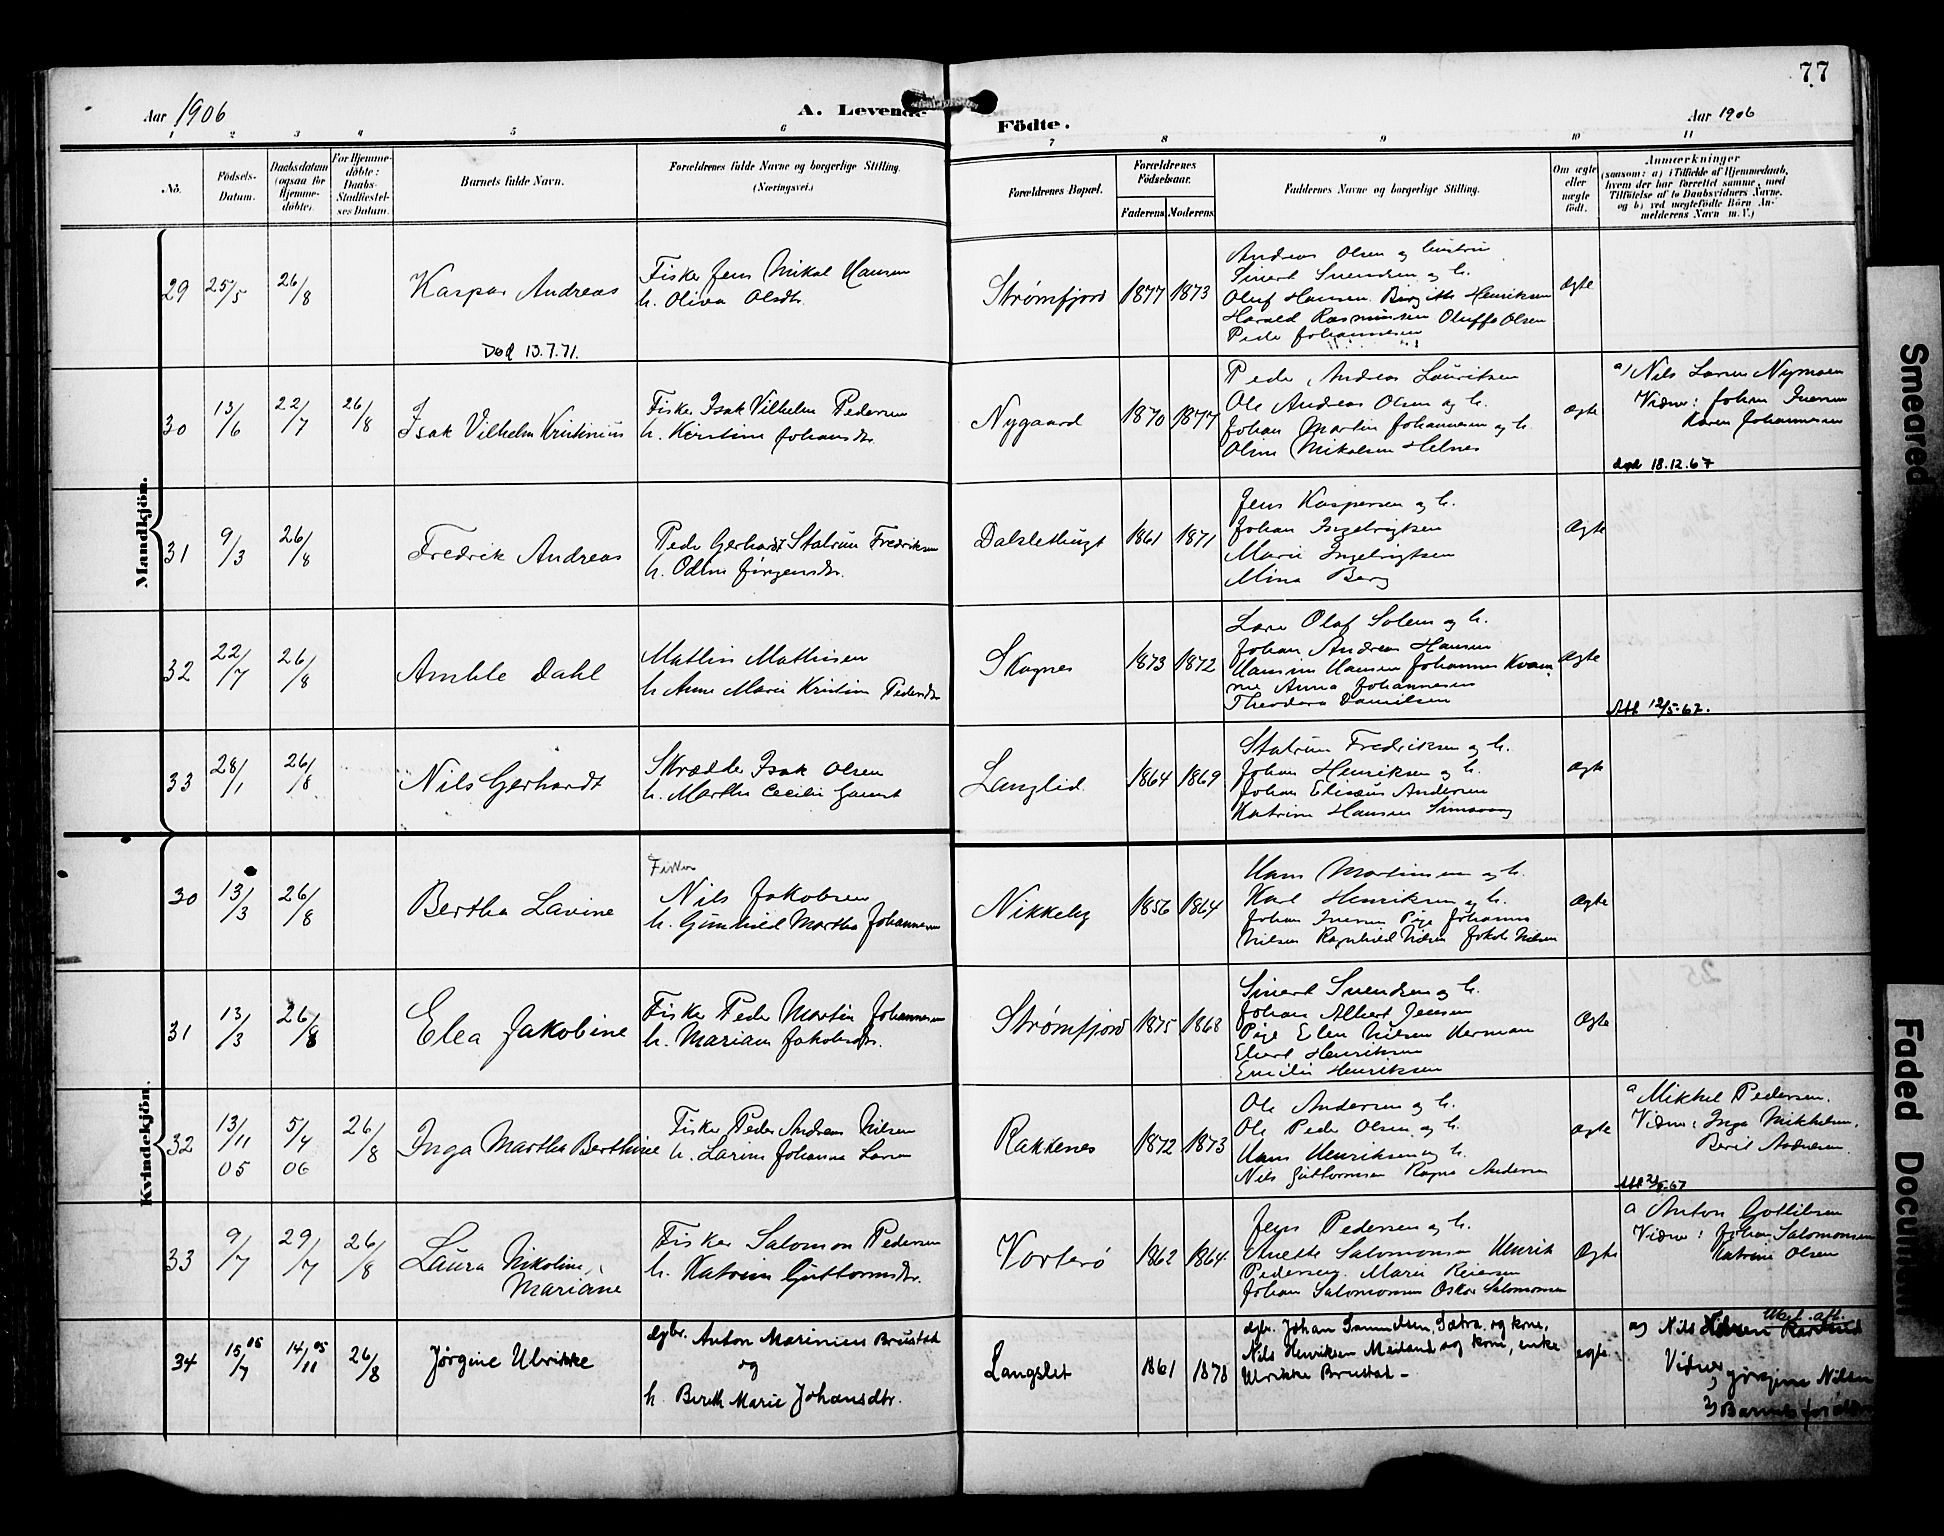 77
Aar 1906
A. Levende Födte.
Aar 1906
1 2 3 4 5 6 7 8 9 10 11
No.
Födsels-Datum.
Daabsdatum (ogsaa for Hjemme-döbte).
For Hjemme-döbte: Daabs-Stadfæstel-ses Datum.
Barnets fulde Navn.
Forældrenes fulde Navne og borgerlige Stilling.
(Næringsvei.)
Forældrenes Bopæl.
Forældrenes Födselsaar.
Faderens Moderens
Faddernes Navne og borgerlige Stilling.
Om ægte eller uægte födt.
Anmærkninger
(saasom: a) i Tilfælde af Hjemmedaab,
hvem der har forrettet samme, med
Tilföielse af to Daabsvidners Navne,
og b) ved uægtefödte Börn An-
melderens Navn m. V.)
Mandkjön.
29 25/5 26/8 Kaspar Andreas
Død 13.7.71.
Fisker Jens Mikal Hansen
h. Oliva Olsdtr.
Strømfjord 1877 1873
Andreas Olsen og hustru
Sivert Svendsen og h.
Oluf Hansen Birgitte Henriksen
Harald Rasmussen Oluffa Olsen
Peder Johannesen
Ægte
30 13/6 22/7 26/8 Isak Vilhelm Kristinius
Fisker Isak Vilhelm Pedersen
h. Kirstine Johansdtr.
Nygaard 1870 1877
Peder Andreas Lauritsen
Ole Andreas Olsen og h.
Johan Martin Johannesen og h.
Oline Nikolsen Helnes
Ægte
a) Nils Larsen Nymoen
Vidner: Johan Iversen
Karen Johannesen
død 18.12.67
31 9/3 26/8 Fredrik Andreas
Peder Gerhardt Stalrun Fredriksen
h. Odine Jørgensdtr.
Dalsletbugt 1861 1871
Jens Kaspersen og h.
Johan Ingebrigtsen
Marie Ingebrigtsen
Mina Berg
Ægte
32 22/7 26/8 Amble Dahl
Mathis Mathisen
h. Anne Marie Kristine Pedersdtr
Skognes 1873 1872
Lærer Olaf Solem og h.
Johan Andreas Hansen
Hansine Hansen Johannes Kvæn-
Anna Johannesen
Theodora Danielsen
Ægte
Att 12/5-67.
33 28/1 26/8 Nils Gerhardt
Skrædder Isak Olsen
h. Martha Cecilie
Langlid 1864 1869
Stalrun Fredriksen og h.
Johan Henriksen og h.
Johan Elisæus Andersen
Katrine Hansen Simavaag
Ægte
Kvindekjön.
30 13/3 26/8 Bertha Lavine
Fisker
Nils Jakobsen
h. Gunhild Martha Johannesen
Nikkeby 1856 1864
Hans Mortensen og h.
Karl Henriksen og h.
Johan Iversen Pige Johanna
Nilsen Ragnhild Nilsen Jakob Nilsen
Ægte
31 13/3 26/8 Elea Jakobine
Fisker Peder Martin Johannesen
h. Mariane Jakobsdtr.
Strømfjord 1875 1868
Sivert Svendsen og h.
Johan Albert Jensen
Pige Elen Nilsen Herman
Elvert Henriksen
Emilie Henriksen
Ægte
32 13/11 05 5/4 06 26/8 Inga Martha Berthine
Fisker Peder Andreas Nilsen
h. Larine Johanna Larsen
Rakkenes 1872 1873
Ole Andersen og h.
Ole Peder Olsen og h.
Hans Henriksen og h.
Nils Guttormsen Ragna Andersen
Ægte
a Mikkel Pedersen.
Vidner: Inga Mikkelsen.
Berit Andreasen.
33 9/7 29/7 26/8 Laura Nikoline,
Mariane
Fisker Salomon Pedersen
h. Katrine Guttormsdtr.
Vorterø 1862 1864
Jens Pedersen og h.
Anette Salomonsen Henrik
Pedersen. Marie Reiersen
Johan Salomonsen Oskar Salomonsen
Ægte
a Anton Gottlibsen
Vidner: Johan Salomonsen
Katrine Olsen
34 15/7 05 14/11 05 26/8 Jørgine Ulrikke
dgbr. Anton Marinius Brustad
og
h. Bereth Marie Johansdtr.
Langslet 1861 1878
dgbr. Johan Samuelsen, Sætra, og kone,
Nils Henriksen Meiland og kone, enke
Ulrikke Brustad –
egte
Utst. att.
a) Nils
Vidner 1) Jørgine Nilsen
2) Barnets forældre
Smeared
Faded Document